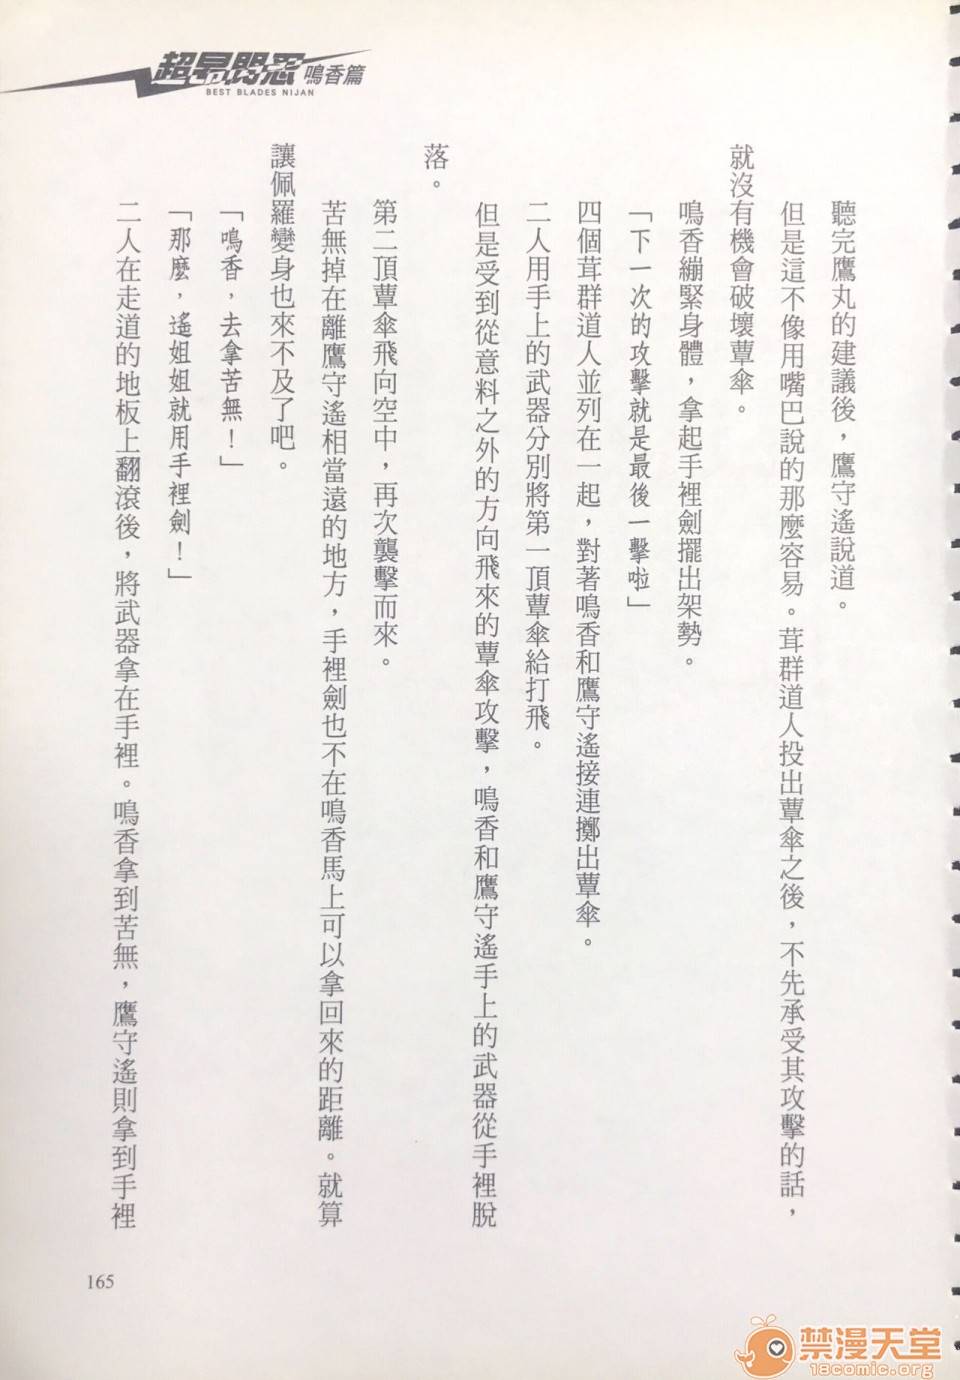 超昂閃忍 鳴香篇
BEST BLADES NIJAN
聽完鷹丸的建議後，鷹守遙說道。
但是這不像用嘴巴說的那麼容易。茸群道人投出蕈傘之後，不先承受其攻擊的話，
就沒有機會破壞蕈傘。
鳴香繃緊身體，拿起手裡劍擺出架勢。
「下一次的攻擊就是最後一擊啦」
四個茸群道人並列在一起，對著鳴香和鷹守遙接連擲出蕈傘。
二人用手上的武器分別將第一頂蕈傘給打飛。
但是受到從意料之外的方向飛來的蕈傘攻擊，鳴香和鷹守遙手上的武器從手裡脫
落。
第二頂蕈傘飛向空中，再次襲擊而來。
苦無掉在離鷹守遙相當遠的地方，手裡劍也不在鳴香馬上可以拿回來的距離。就算
讓佩羅變身也來不及了吧。
「鳴香，去拿苦無！」
「那麼，遙姐姐就用手裡劍！」
二人在走道的地板上翻滾後，將武器拿在手裡。鳴香拿到苦無，鷹守遙則拿到手裡
165
禁漫天堂
18comic.org